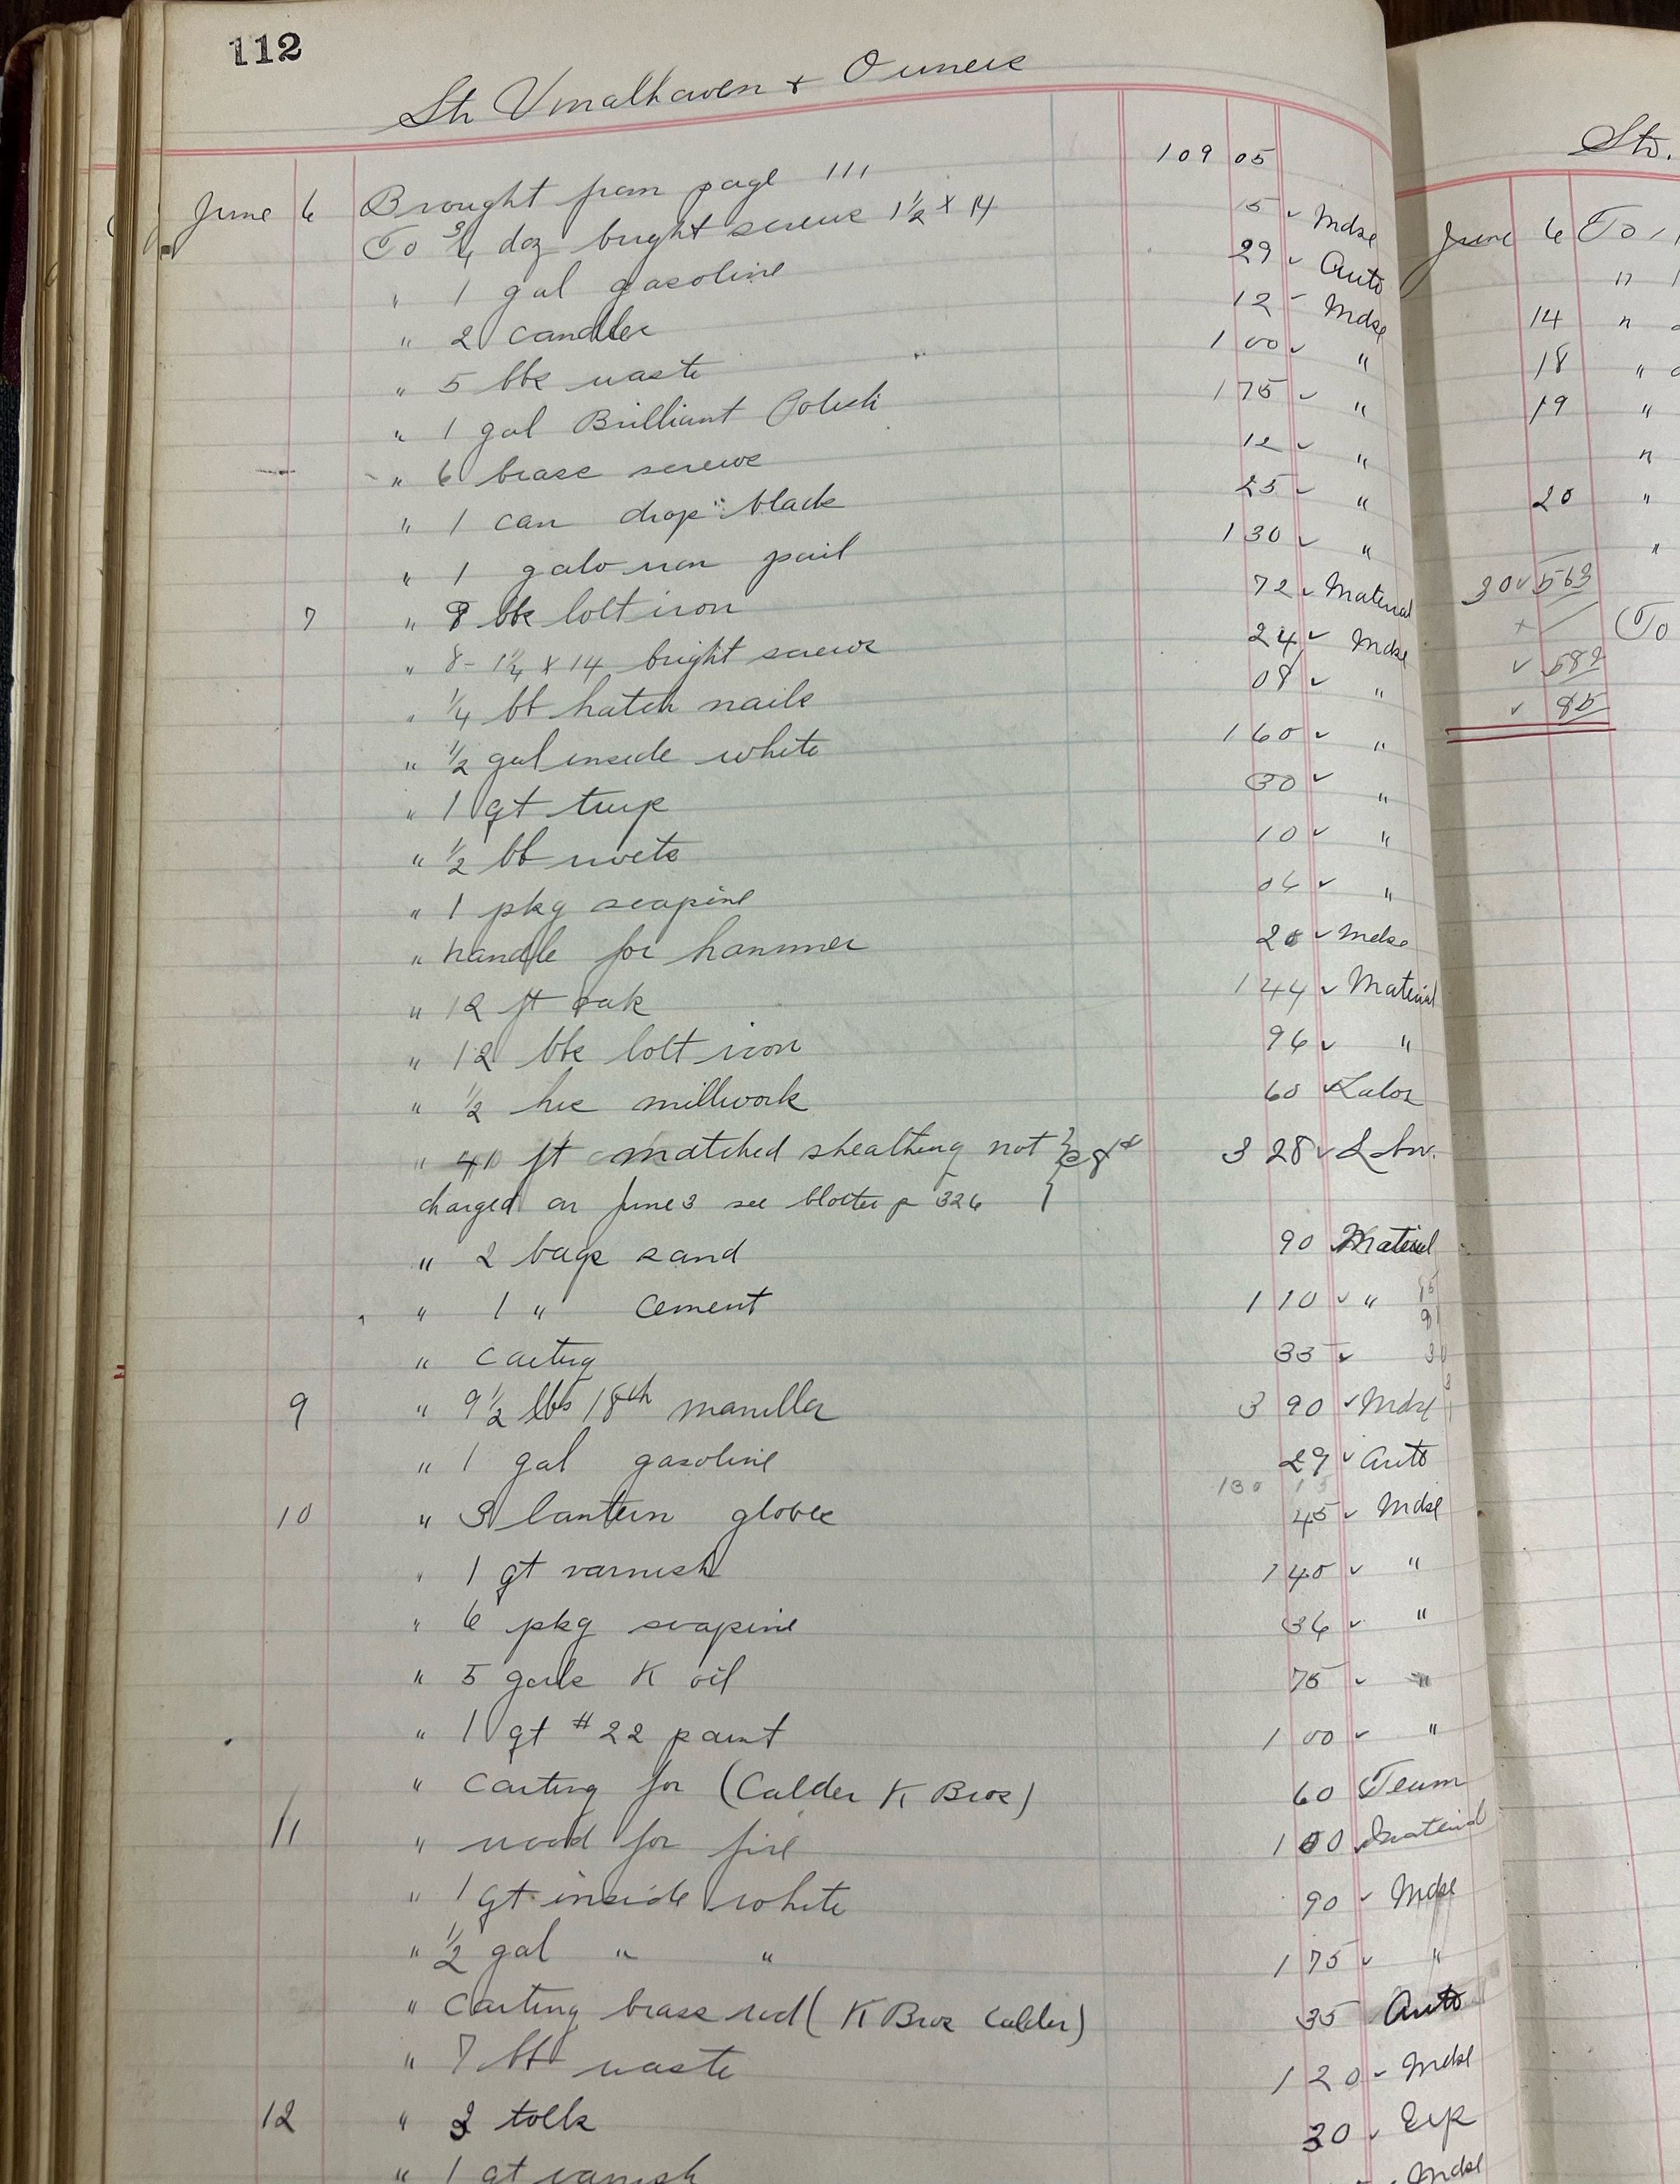 112
Str Vinalhaven & Owners
June 6 Brought from page 111 109 05
To 3/4 doz bright screws 1 1/2 x 14 15 ✓ Mdse
" 1 gal gasoline 29 ✓ Auto
" 2 candles 12 ✓ Mdse
" 5 lbs waste 1 00 ✓ "
" 1 gal Brilliant Polish 1 75 ✓ "
" 6 brass screws 12 ✓ "
" 1 can drop black 25 ✓ "
" 1 galv iron pail 1 30 ✓ "
7 " 8 lbs bolt iron 72 ✓ Material
" 8 - 1 1/4 x 14 bright screws 24 ✓ Mdse
" 1/4 lb hatch nails 08 ✓ "
" 1/2 gal inside white 1 60 ✓ "
" 1 qt turp 30 ✓ "
" 1/2 lb rivets 10 ✓ "
" 1 pkg soapine 06 ✓ "
" handle for hammer 20 ✓ Mdse
" 12 ft oak 1 44 ✓ Material
" 12 lbs bolt iron 96 ✓ "
" 1/2 hrs millwork 60 ✓ Labor
" 41 ft matched sheathing not } 8¢ 3 28 ✓
charged on June 3 see blotter p 326
" 2 bags sand 90 ✓ Material
" 1 " cement 1 10 ✓ "
" Carting 35 ✓
9 " 9 1/2 lbs 18th manilla 3 90 ✓ Mdse
" 1 gal gasoline 29 ✓ Auto
10 " 3 lantern globes 45 ✓ Mdse
" 1 qt varnish 1 40 ✓ "
" 6 pkg soapine 36 ✓ "
" 5 gals K oil 75 ✓ "
" 1 qt #22 paint 1 00 ✓ "
" Carting for (Calder K Bros) 60 Team
11 " wood for fire 1 00 Material
" 1 qt inside white 90 ✓ Mdse
" 1/2 gal " " 1 75 ✓ "
" Carting brass rod (K Bros Calder) 35 Auto
" 7 lb waste 1 20 ✓ Mdse
12 " 2 tolls 30 ✓ Exp
" 1 qt varnish Mdse
Str.
June 6 To
"
14 "
18 "
19 "
"
20 "
"
30 ✓ 563
To
✓ 582
✓ 85